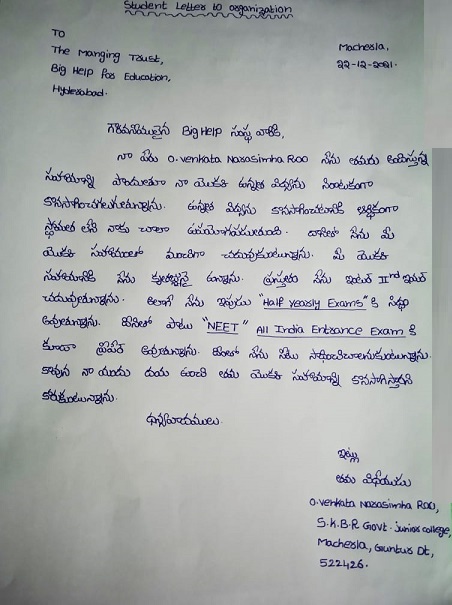 Student Letter to organization
To
The Manging Trust,
Big Help for Education,
Hyderabad.
Macherla,
22-12-2021.
గౌరవనీయులైన Big Help సంస్థ వారికి,
నా పేరు O.venkata Narasimha Rao నేను తమరు అందిస్తున్న
సహాయాన్ని పొందుతూ నా యొక్క ఉన్నత విద్యను నిరాటంకంగా
కొనసాగించగలుగుతున్నాను. ఉన్నత విద్యను కొనసాగించటానికి ఆర్థికంగా
స్థోమత లేని నాకు చాలా ఉపయోగపడుతుంది. దానితో నేను మీ
యొక్క సహాయంతో మంచిగా చదువుకుంటున్నాను. మీ యొక్క
సహాయానికి నేను కృతజ్ఞుడనై ఉన్నాను. ప్రస్తుతం నేను ఇంటర్ IInd ఇయర్
చదువుతున్నాను. అలాగే నేను ఇప్పుడు "Half Yearly Exams" కి సిద్ధం
అవుతున్నాను. దీనితో పాటు "NEET" All India Entrance Exam కి
కూడా ప్రిపేర్ అవుతున్నాను. ఇందులో నేను సీటు సాధించాలనుకుంటున్నాను.
కావున నా యందు దయ ఉంచి తమ యొక్క సహాయాన్ని కొనసాగిస్తారని
కోరుకుంటున్నాను.
ధన్యవాదములు.
ఇట్లు
తమ విధేయుడు
O.venkata Narasimha Rao,
S.K.B.R Govt. Junior college,
Macherla, Guntur Dt,
522426.